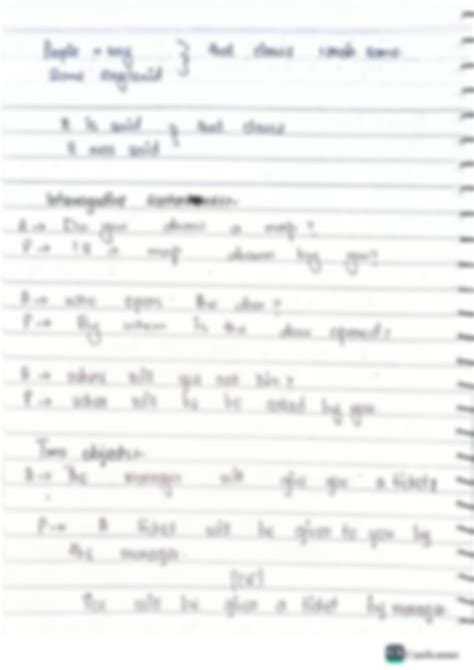 People say } that clause
Some say/said
It is said } that clause
It was said
Interrogative
A → Do you draw a map?
P → Is a map drawn by you?
A → who opens the door?
P → By whom is the door opened?
A → when will you
P → when will he be by you
Two objects:-
A → The manager will give you a ticket
P → A ticket will be given to you by
the manager.
[OR]
You will be given a ticket by manager
CamScanner